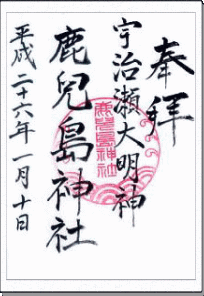 奉拝
宇治瀬大明神
鹿兒島神社
平成二十六年一月十日
鹿兒島神社